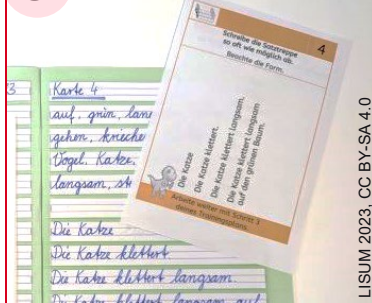 3
Karte 4
auf, grün, lang
gehen, krieche
Vogel, Katze,
langsam, st
Die Katze
Die Katze klettert
Die Katze klettert langsam.
Die Katze klettert langsam auf
Schreibe die Satztreppe
so oft wie möglich ab.
Beachte die Form.
4
Die Katze
Die Katze klettert.
Die Katze klettert langsam.
Die Katze klettert langsam
auf den grünen Baum.
Arbeite weiter mit Schritt 3
deines Trainingsplans.
LISUM 2023, CC BY-SA 4.0